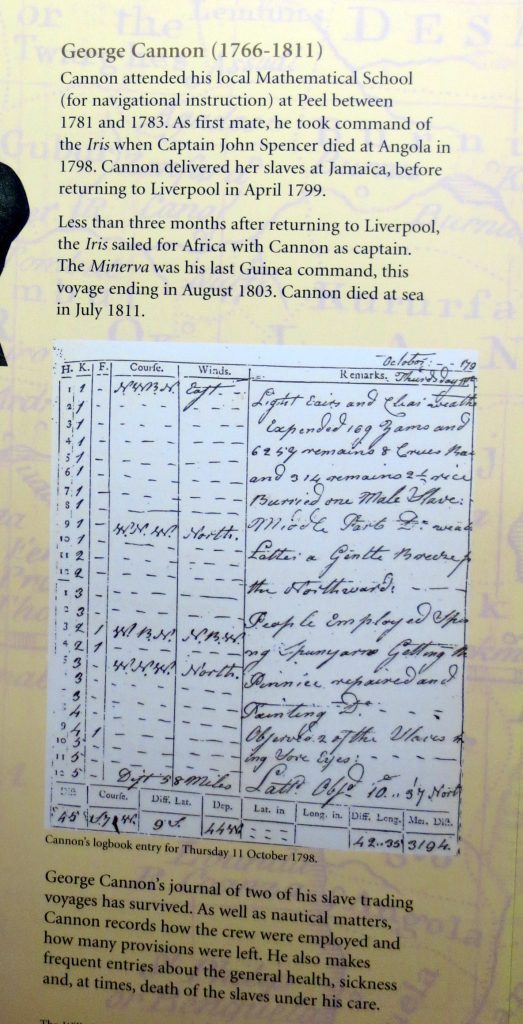 George Cannon (1766-1811)
Cannon attended his local Mathematical School
(for navigational instruction) at Peel between
1781 and 1783. As first mate, he took command of
the Iris when Captain John Spencer died at Angola in
1798. Cannon delivered her slaves at Jamaica, before
returning to Liverpool in April 1799.
Less than three months after returning to Liverpool,
the Iris sailed for Africa with Cannon as captain.
The Minerva was his last Guinea command, this
voyage ending in August 1803. Cannon died at sea
in July 1811.
October
H. K. F. Course. Winds. Remarks. Thursday 11th
1 1 N.W.B.N. East Light Eairs and Clear
2 1 Expended 169 Yams and
3 1
4 1 6259 remains 8 Crues
5 1
6 1 and 314 remains rice
7 1 Burried one Male Slave:
8 1
9 1 W.N.W. North. Middle Part Do
10 1
11 2 Latter a Gentle Breeze
12 2 the Northward:
1 3
2 3 People Employed
3 2 1 W.B.N. N.B.W
4 2 1 Spunyarn Getting
5 3 W.N.W. North.
3 Pinnice repaired and
3
4 Painting Do
9 4 1 Observed 2 of the Slaves
10 5
11 5 ing Sore Eyes:
12 5 Dist 58 Miles Lattd Obsd 10..37 North
Course. Diff. Lat. Dep. Lat. in Long. in. Diff. Long. Mer. Dist.
45 9 S. 44 W 42..35 3194.
Cannon's logbook entry for Thursday 11 October 1798.
George Cannon's journal of two of his slave trading
voyages has survived. As well as nautical matters,
Cannon records how the crew were employed and
how many provisions were left. He also makes
frequent entries about the general health, sickness
and, at times, death of the slaves under his care.